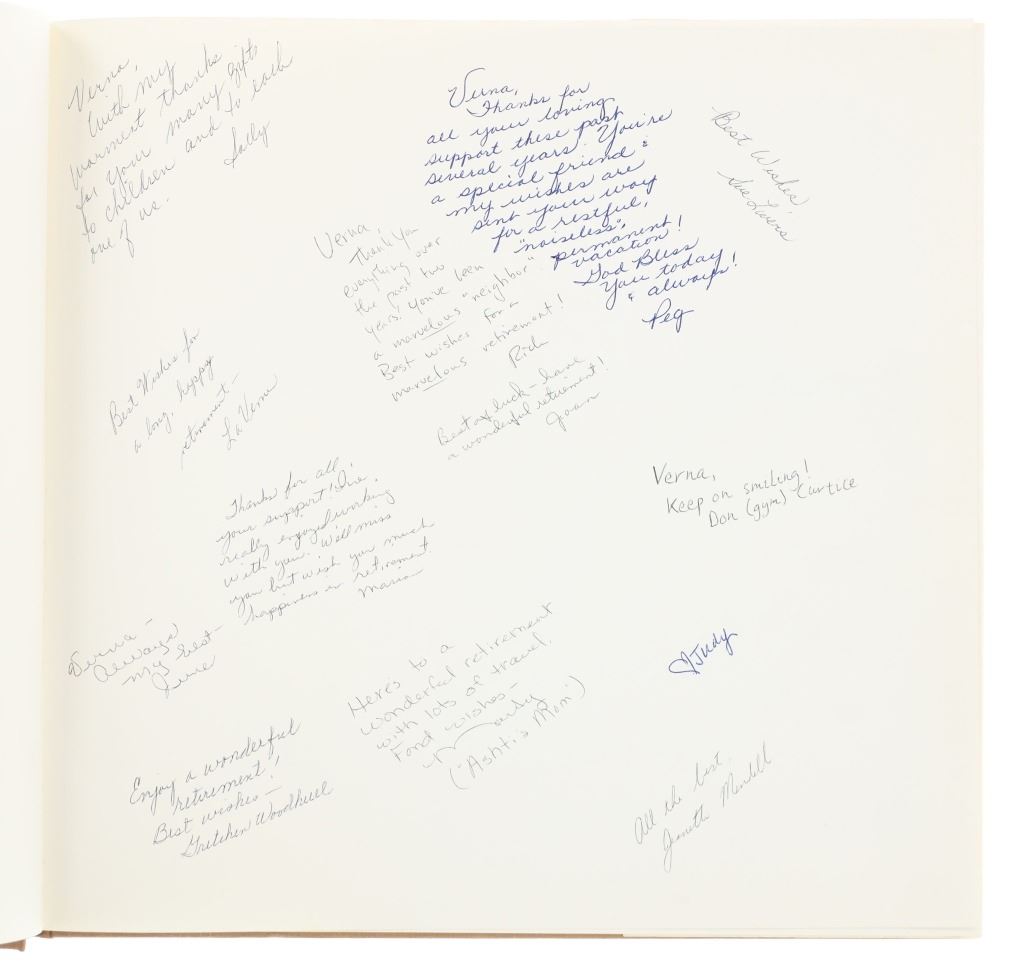 Verna,
With my
warmest thanks
for your many gifts
to children and to each
one of us.
Sally
Verna,
Thanks for
all your loving
support these past
several years. You're
a special friend &
my wishes are
sent your way
for a restful,
"noiseless",
permanent!
vacation!
God Bless
You today
& always!
Peg
Best Wishes
the
Verna,
Thank You
everything over
the past two
years. You've been
a marvelous "neighbor".
Best wishes for a
marvelous retirement!
Rich
Best Wishes for
a long, happy
retirement –
LaVerne
Best of luck – have
a wonderful retirement!
Joan
Verna,
Keep on smiling!
Don (gym) Curtice
Thanks for all
your support! I've
really enjoyed working
with you. We'll miss
you but wish you much
happiness in retirement
Maria
Verna –
Always
My best –
June
Here's to a
wonderful retirement
with lots of travel.
Fond wishes –
Marty
("Ashti's Mom")
Judy
Enjoy a wonderful
retirement!
Best wishes –
Gretchen Woodhull
All the best,